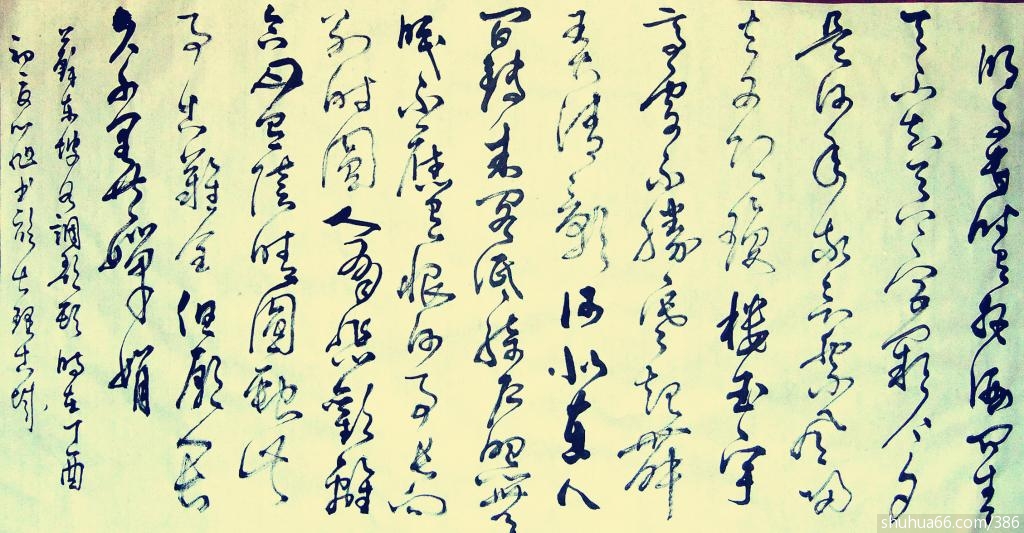 明月幾时有把酒问青
天不知天上宫阙今夕
是何年我欲乘風归
去又恐瓊楼玉宇
高處不勝寒起舞
弄清影何似在人
間轉朱閣低綺户照無
眠不應有恨何事长向
别时圓人有悲歡離
合月有陰晴圓缺此
事古難全但願人长
久千里共嬋娟
蘇東坡水調歌頭時在丁酉
初夏书於古城
shuhua66.com/386